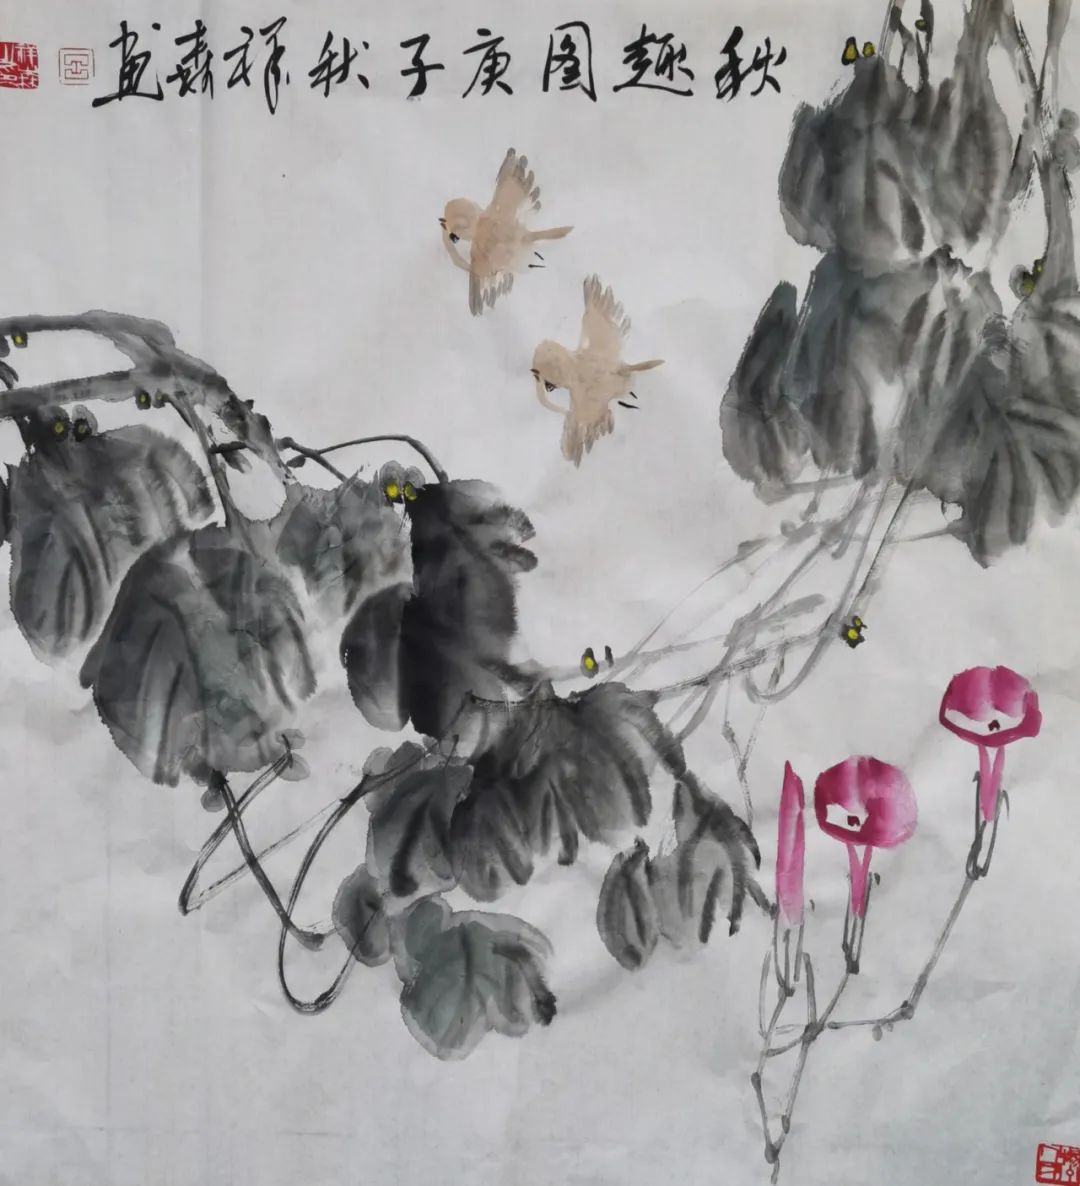 秋趣图庚子秋祥森画